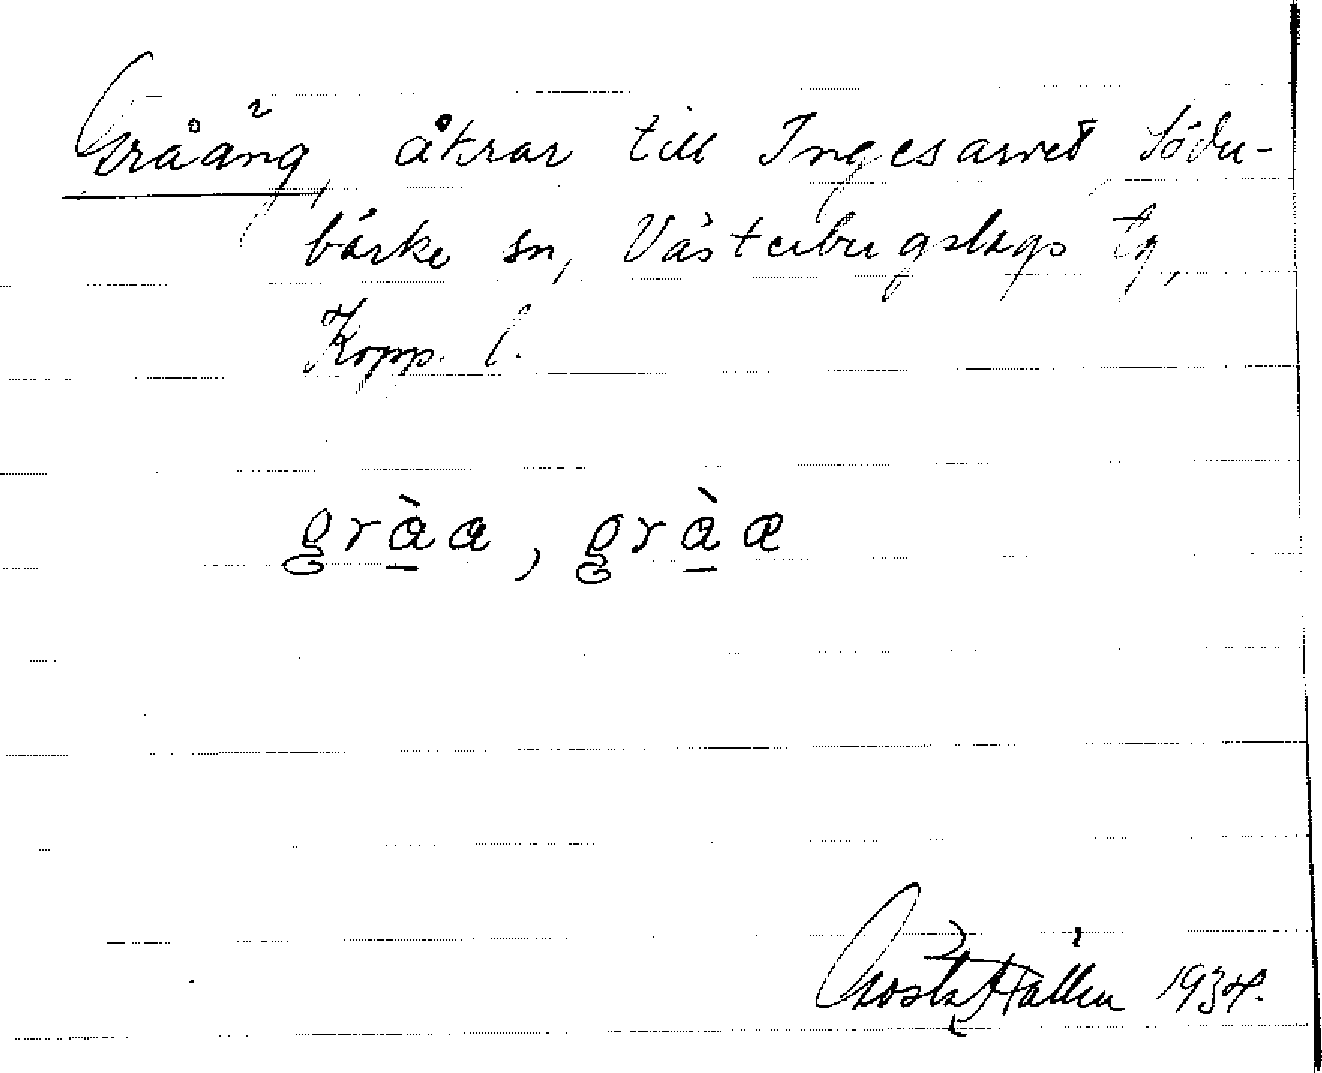 Gråäng, åkrar till Ingesarvet Söder-
bärke sn, Västerbergslags tg,
Kopp. l.
gràa, gràæ
Gösta Hallén 1934.